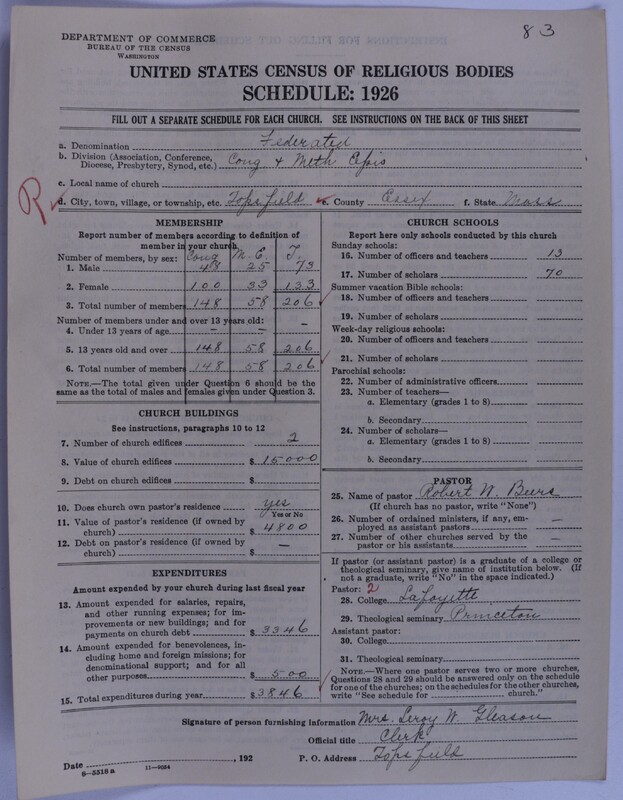 83
DEPARTMENT OF COMMERCE
BUREAU OF THE CENSUS
WASHINGTON
UNITED STATES CENSUS OF RELIGIOUS BODIES
SCHEDULE: 1926
FILL OUT A SEPARATE SCHEDULE FOR EACH CHURCH. SEE INSTRUCTIONS ON THE BACK OF THIS SHEET
a. Denomination Federated
b. Division (Association, Conference, Diocese, Presbytery, Synod, etc.) Cong & Meth Epis
c. Local name of church
R
d. City, town, village, or township, etc. Topsfield e. County Essex f. State Mass
MEMBERSHIP
Report number of members according to definition of
member in your church
Number of members by sex: Cong M. E. T.
1. Male 48 25 73
2. Female 100 33 133
3. Total number of members 148 58 206
Number of members under and over 13 years old:
4. Under 13 years of age - - -
5. 13 years old and over 148 58 206
6. Total number of members 148 58 206
NOTE.—The total given under Question 6 should be the
same as the total of males and females given under Question 3.
CHURCH BUILDINGS
See instructions, paragraphs 10 to 12
7. Number of church edifices 2
8. Value of church edifices $ 15000
9. Debt on church edifices $
10. Does church own pastor's residence yes
Yes or No
11. Value of pastor's residence (if owned by
church) $ 4800
12. Debt on pastor's residence (if owned by
church) $ —
EXPENDITURES
Amount expended by your church during last fiscal year
13. Amount expended for salaries, repairs,
and other running expenses; for im-
provements or new buildings; and for
payments on church debt $ 3346
14. Amount expended for benevolences, in-
cluding home and foreign missions; for
denominational support; and for all
other purposes $ 500
15. Total expenditures during year $ 3846
CHURCH SCHOOLS
Report here only schools conducted by this church
Sunday schools:
16. Number of officers and teachers 13
17. Number of scholars 70
Summer vacation Bible schools:
18. Number of officers and teachers
19. Number of scholars
Week-day religious schools:
20. Number of officers and teachers
21. Number of scholars
Parochial schools:
22. Number of administrative officers
23. Number of teachers—
a. Elementary (grades 1 to 8)
b. Secondary
24. Number of scholars—
a. Elementary (grades 1 to 8)
b. Secondary
PASTOR
25. Name of pastor Robert W. Beers
(If church has no pastor, write "None")
26. Number of ordained ministers, if any, em-
ployed as assistant pastors —
27. Number of other churches served by the
pastor or his assistants —
If pastor (or assistant pastor) is a graduate of a college or
theological seminary, give name of institution below. (If
not a graduate, write "No" in the space indicated.)
Pastor: 2
28. College Lafayette
29. Theological seminary Princeton
Assistant pastor:
30. College
31. Theological seminary
NOTE.—Where one pastor serves two or more churches,
Questions 28 and 29 should be answered only on the schedule
for one of the churches; on the schedules for the other churches,
write "See schedule for church."
Signature of person furnishing information Mrs. Leroy W. Gleason
Official title Clerk
Date , 192 P. O. Address Topsfield
8—5518 a 11—9684